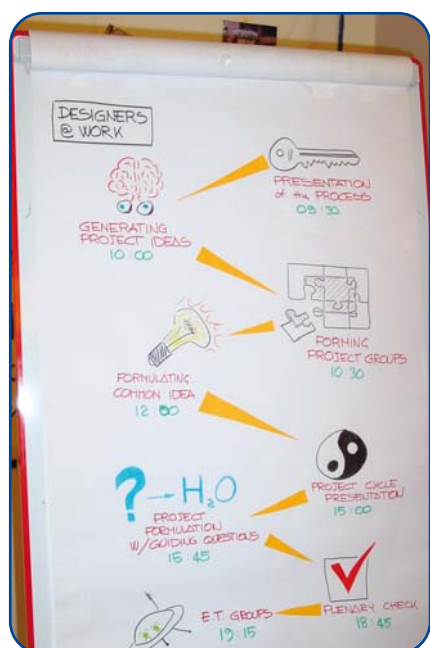 DESIGNERS
@ WORK
PRESENTATION
of the PROCESS
09:30
GENERATING
PROJECT IDEAS
10:00
FORMING
PROJECT GROUPS
10:30
FORMULATING
COMMON IDEA
12:00
PROJECT CYCLE
PRESENTATION
15:00
? → H₂O
PROJECT
FORMULATION
W/GUIDING QUESTIONS
15:45
PLENARY CHECK
18:45
E.T. GROUPS
19:15